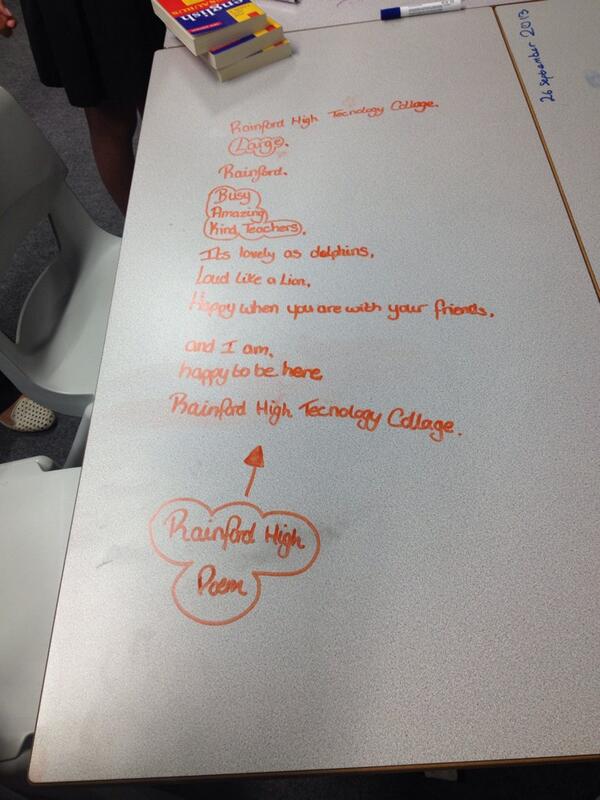 english
THESAURUS
english
26 September 2013
Rainford High Tecnology Collage.
Large.
Rainford.
Busy
Amazing
Kind Teachers.
Its lovely as dolphins,
Loud like a Lion,
Happy when you are with your friends,
and I am,
happy to be here
Rainford High Tecnology Collage.
Rainford High
Poem